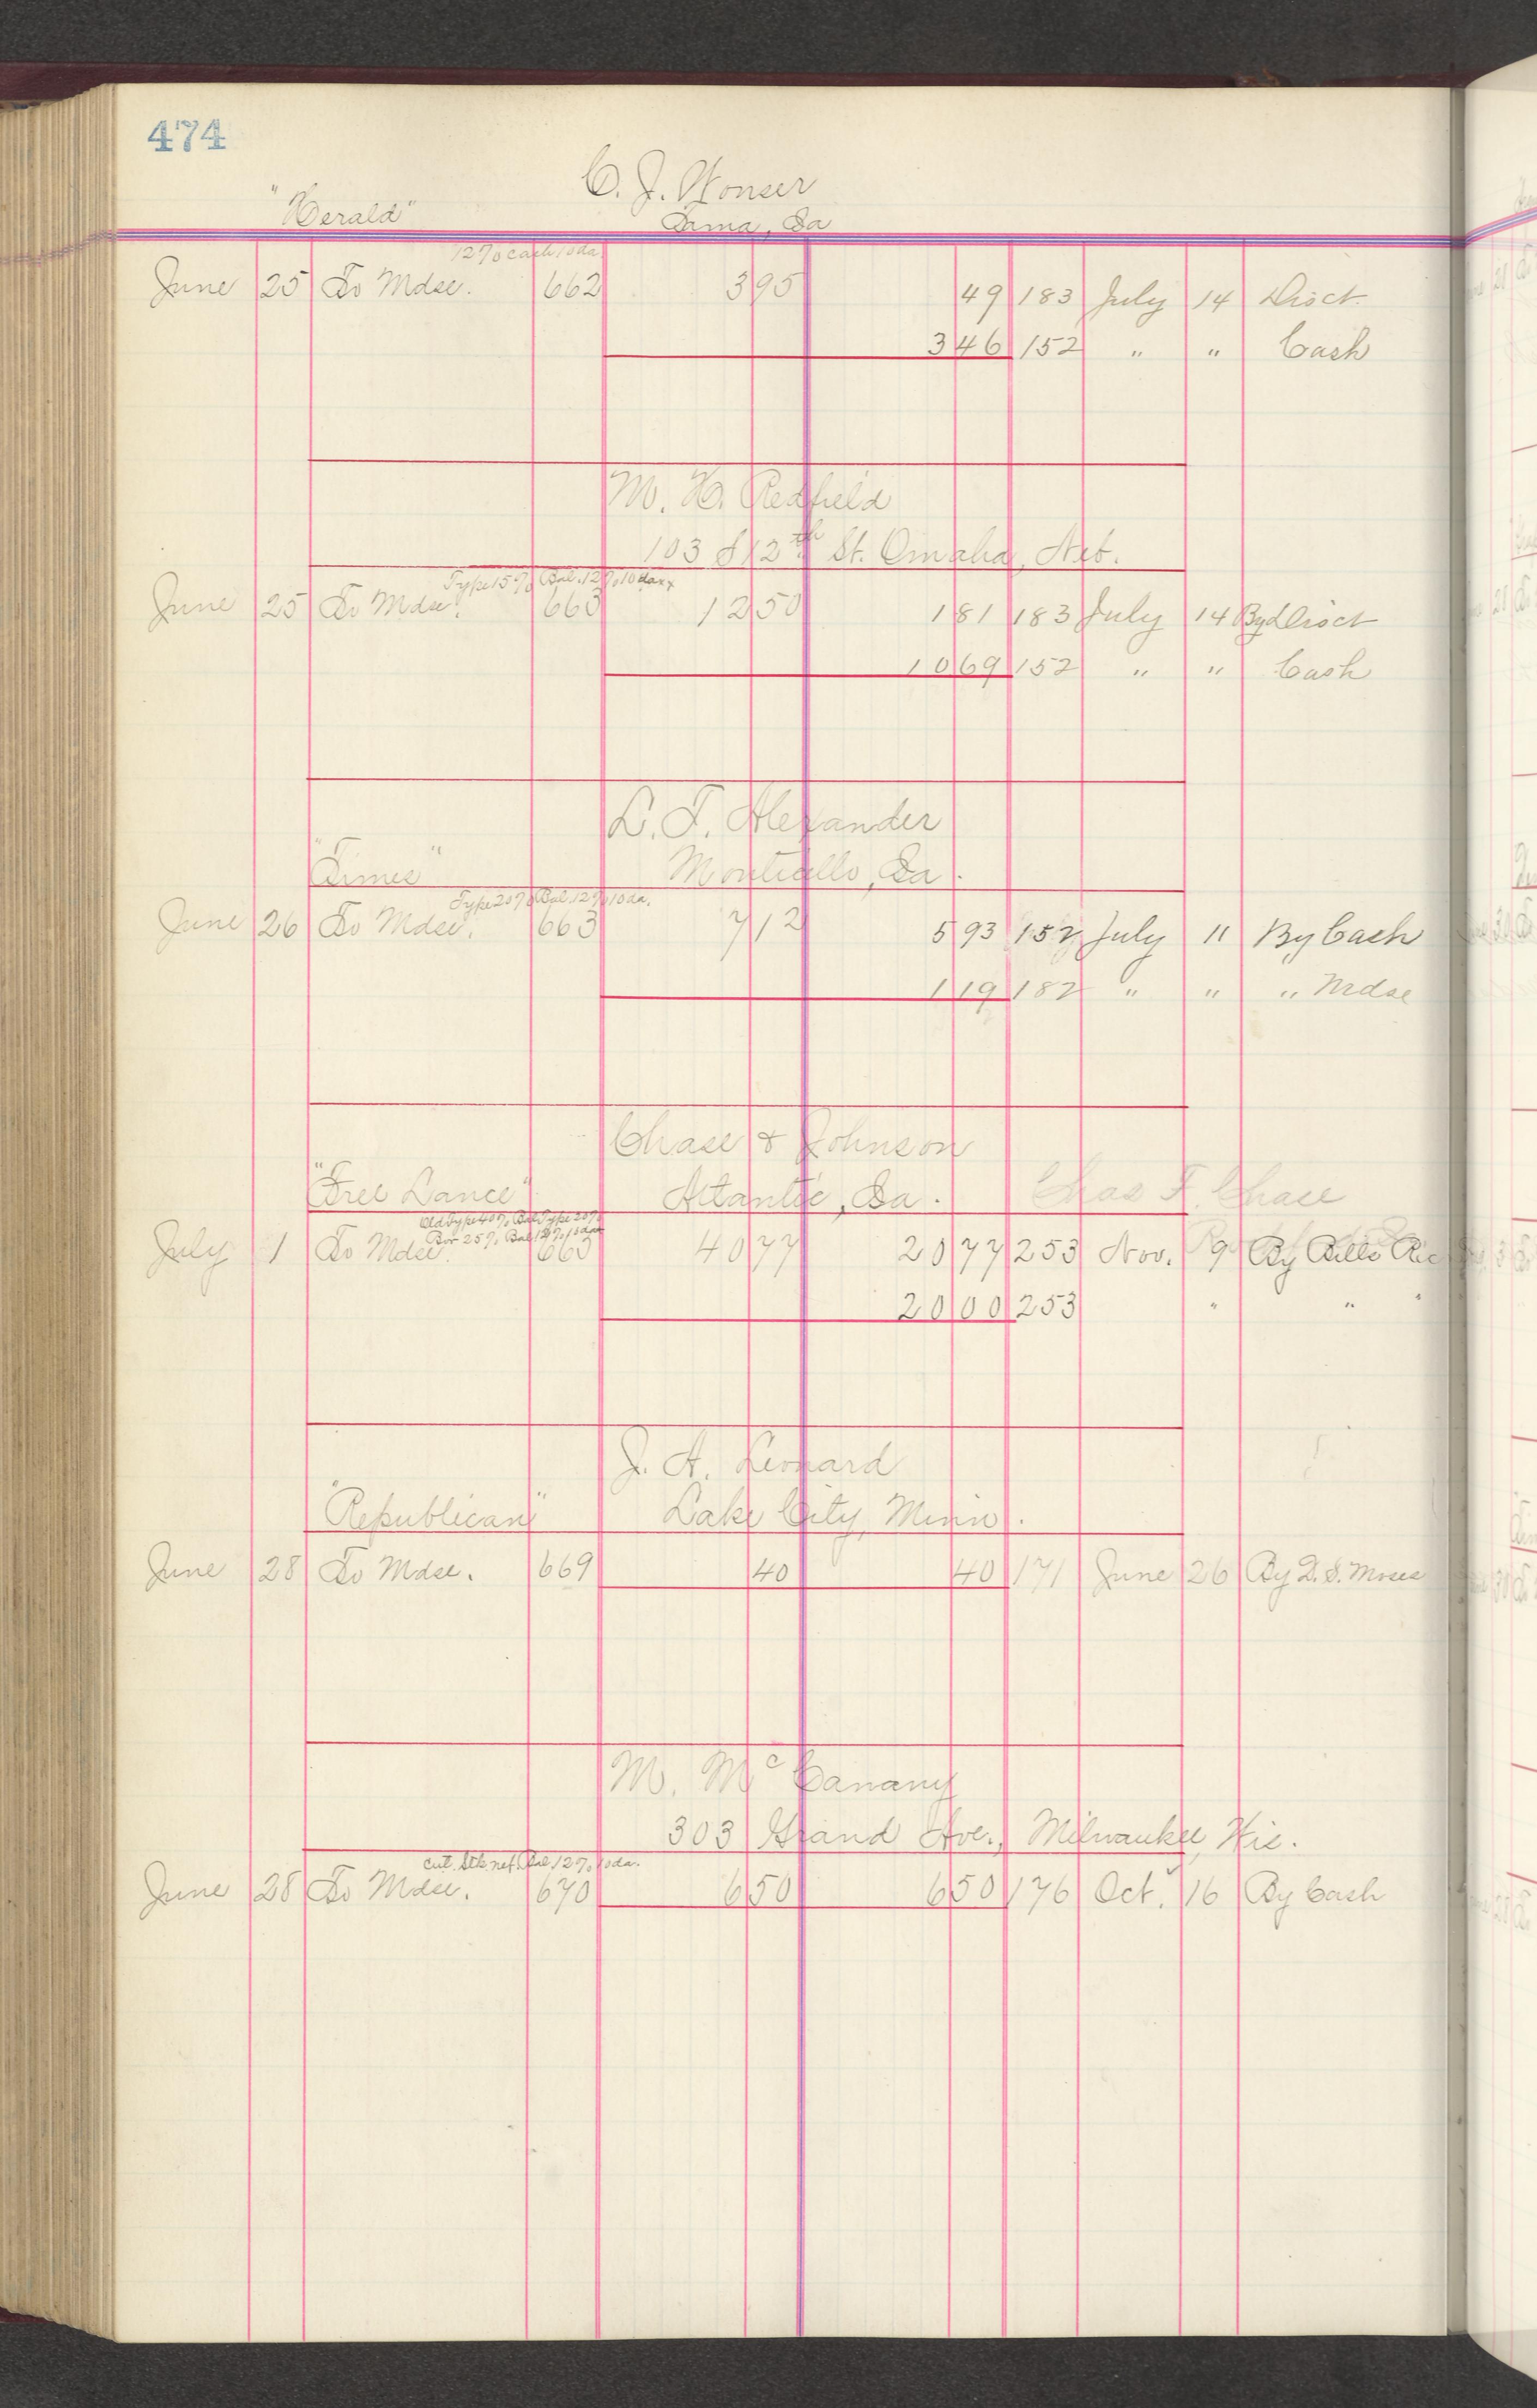 474
C. J. Wonser
"Herald" Tama, Ia
12% Cash 10 da
June 25 To Mdse. 662 3 95 49 183 July 14 Disct.
3 46 152 " " Cash
M. H. Redfield
103 S 12th St. Omaha, Neb.
Type 15% Bal. 12% 10 da
June 25 To Mdse. 663 12 50 1 81 183 July 14 By Disct
10 69 152 " " Cash
L. F. Alexander
"Times" Monticello, Ia.
Type 20% Bal. 12% 10 da.
June 26 To Mdse. 663 7 12 5 93 152 July 11 By Cash
1 19 182 " " " Mdse
Chase & Johnson
"Free Lance" Atlantic, Ia. Chas F. Chase
Old Type 40% Bal Type 20%
Bor 25% Bal 12% 10 da
July 1 To Mdse 663 40 77 20 77 253 Nov. 9 By Bills Rec
20 00 253 " " "
J. A. Leonard
"Republican" Lake City, Minn.
June 28 To Mdse. 669 40 40 171 June 26 By D. S. Moses
M. McCanany
303 Grand Ave., Milwaukee, Wis.
Cut. Stk net. Bal. 12% 10 da.
June 28 To Mdse. 670 6 50 6 50 176 Oct. 16 By Cash